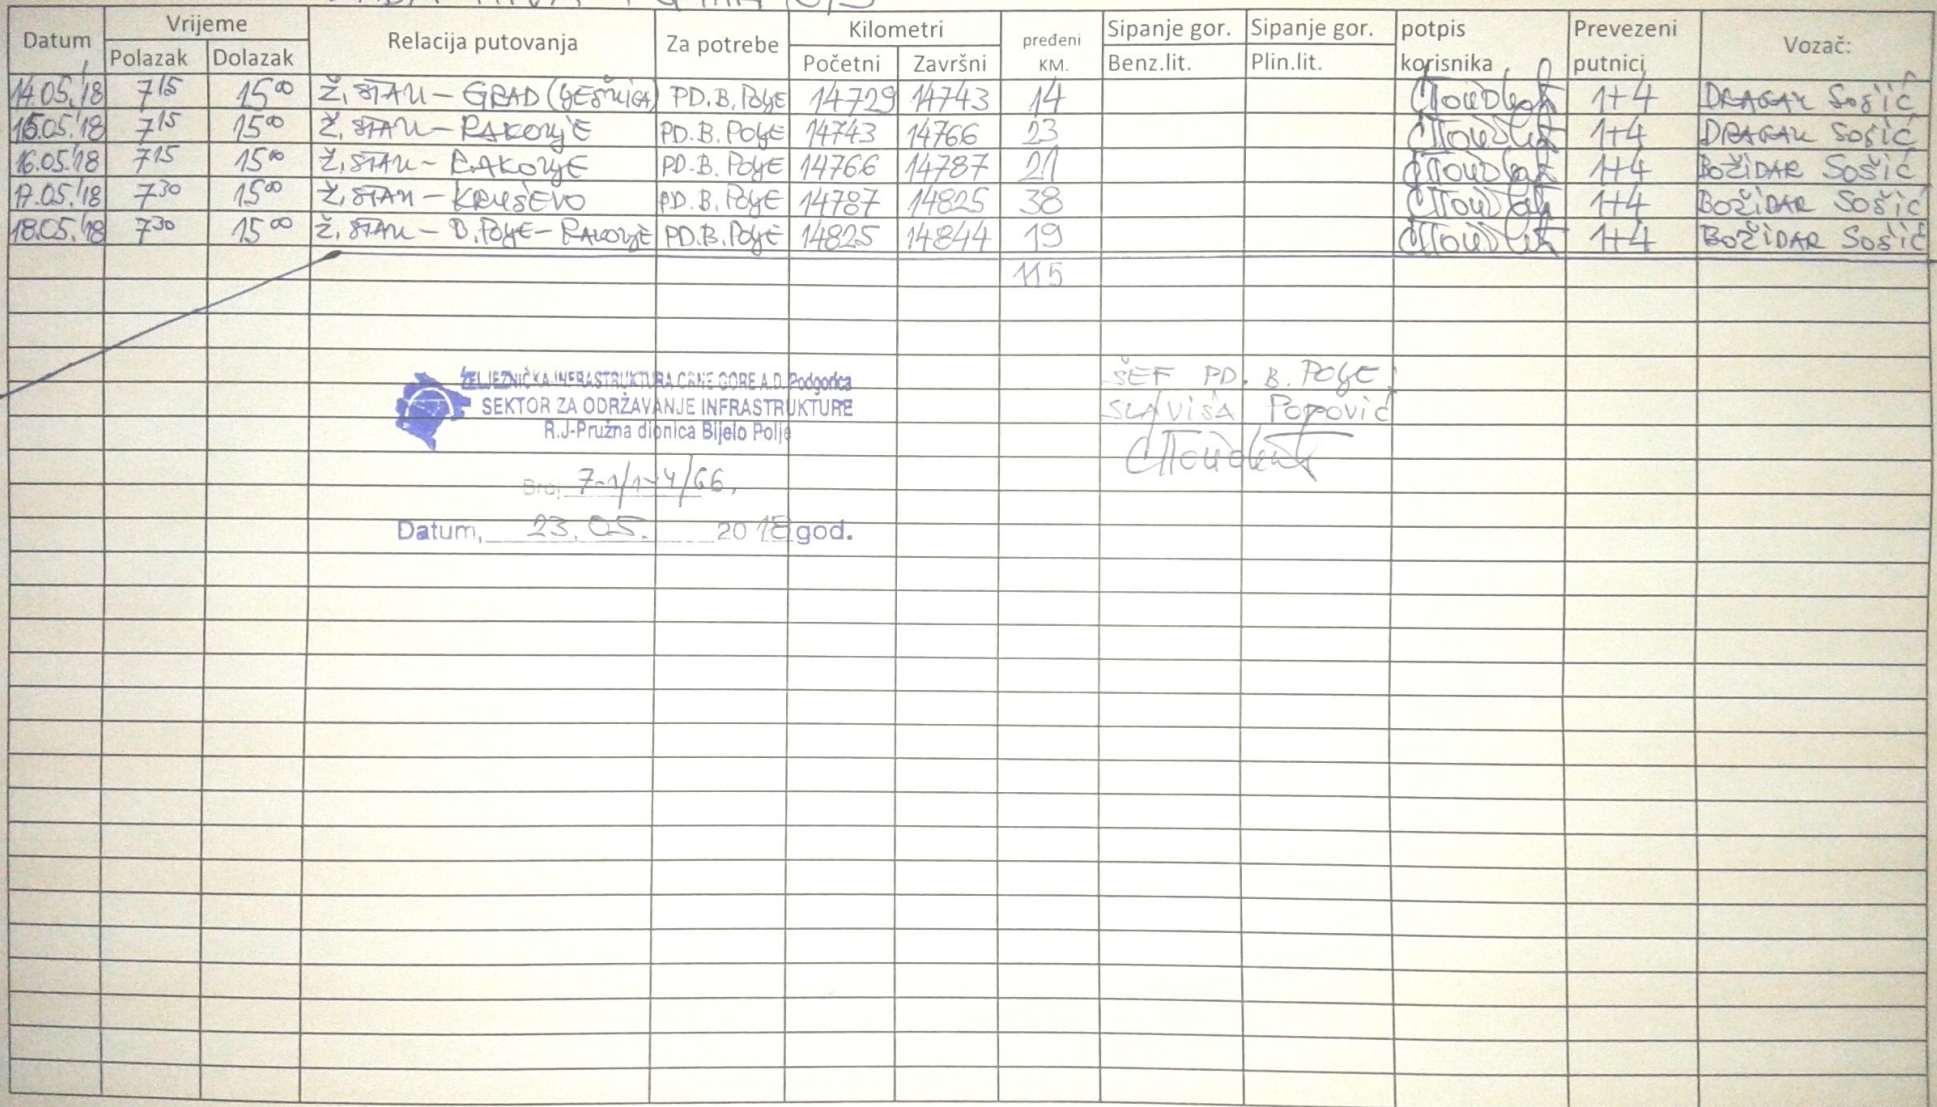 Datum Vrijeme Relacija putovanja Za potrebe Kilometri pređeni KM. Sipanje gor. Sipanje gor. potpis korisnika Prevezeni putnici Vozač:
Polazak Dolazak Početni Završni Benz.lit. Plin.lit.
14.05.'18 715 1500 Ž. STAN - GRAD (YEŠNICA) PD.B.POYE 14729 14743 14 1+4 DRAGAN SOŠIĆ
15.05.'18 715 1500 Ž. STAN - RAKONYE PD.B.POYE 14743 14766 23 1+4 DRAGAN SOŠIĆ
16.05.'18 715 1500 Ž. STAN - RAKONYE PD.B.POYE 14766 14787 21 1+4 BOŽIDAR SOŠIĆ
17.05.'18 730 1500 Ž. STAN - KRUŠEVO PD.B.POYE 14787 14825 38 1+4 BOŽIDAR SOŠIĆ
18.05.'18 730 1500 Ž. STAN - B.POYE - RAKONYE PD.B.POYE 14825 14844 19 1+4 BOŽIDAR SOŠIĆ
115
ŽELJEZNIČKA INFRASTRUKTURA CRNE GORE A.D. Podgorica
SEKTOR ZA ODRŽAVANJE INFRASTRUKTURE
R.J-Pružna dionica Bijelo Polje
Broj 7-1/1-4/66,
Datum, 23.05. 2018 god.
ŠEF PD. B. POYE
SLAVIŠA POPOVIĆ